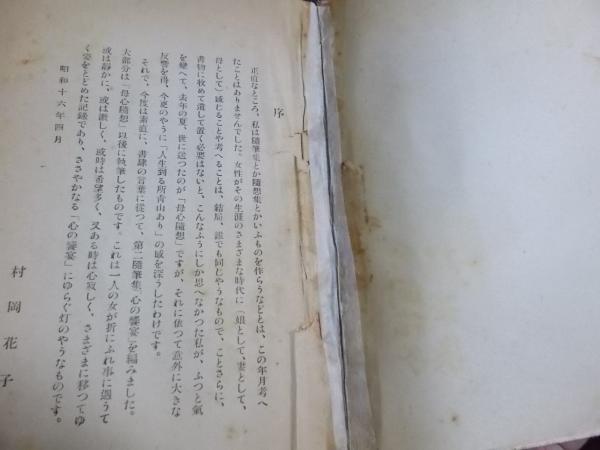 序
正直なところ、私は隨筆集とか隨想集とかいふものを作らうなどとは、この年月考へ
たことはありませんでした。女性がその生涯のさまざまな時代に（娘として、妻として、
母として）感じることや考へることは、結局、誰でも同じやうなもので、ことさらに、
書物に收めて遺して置く必要はないと、こんなふうにしか思へなかつた私が、ふつと氣
を變へて、去年の夏、世に送つたのが「母心隨想」ですが、それに依つて意外に大きな
反響を得、今更のやうに「人生到る所靑山あり」の感を深うしたわけです。
それで、今度は素直に、書肆の言葉に從つて、第二隨筆集「心の饗宴」を編みました。
大部分は「母心隨想」以後に執筆したものです。これは一人の女が折にふれ事に遇うて
或は靜かに、或は激しく、或時は希望多く、又ある時は心寂しく、さまざまに移つてゆ
く姿をとどめた記錄であり、ささやかなる「心の饗宴」にゆらぐ灯のやうなものです。
昭和十六年四月
村岡花子